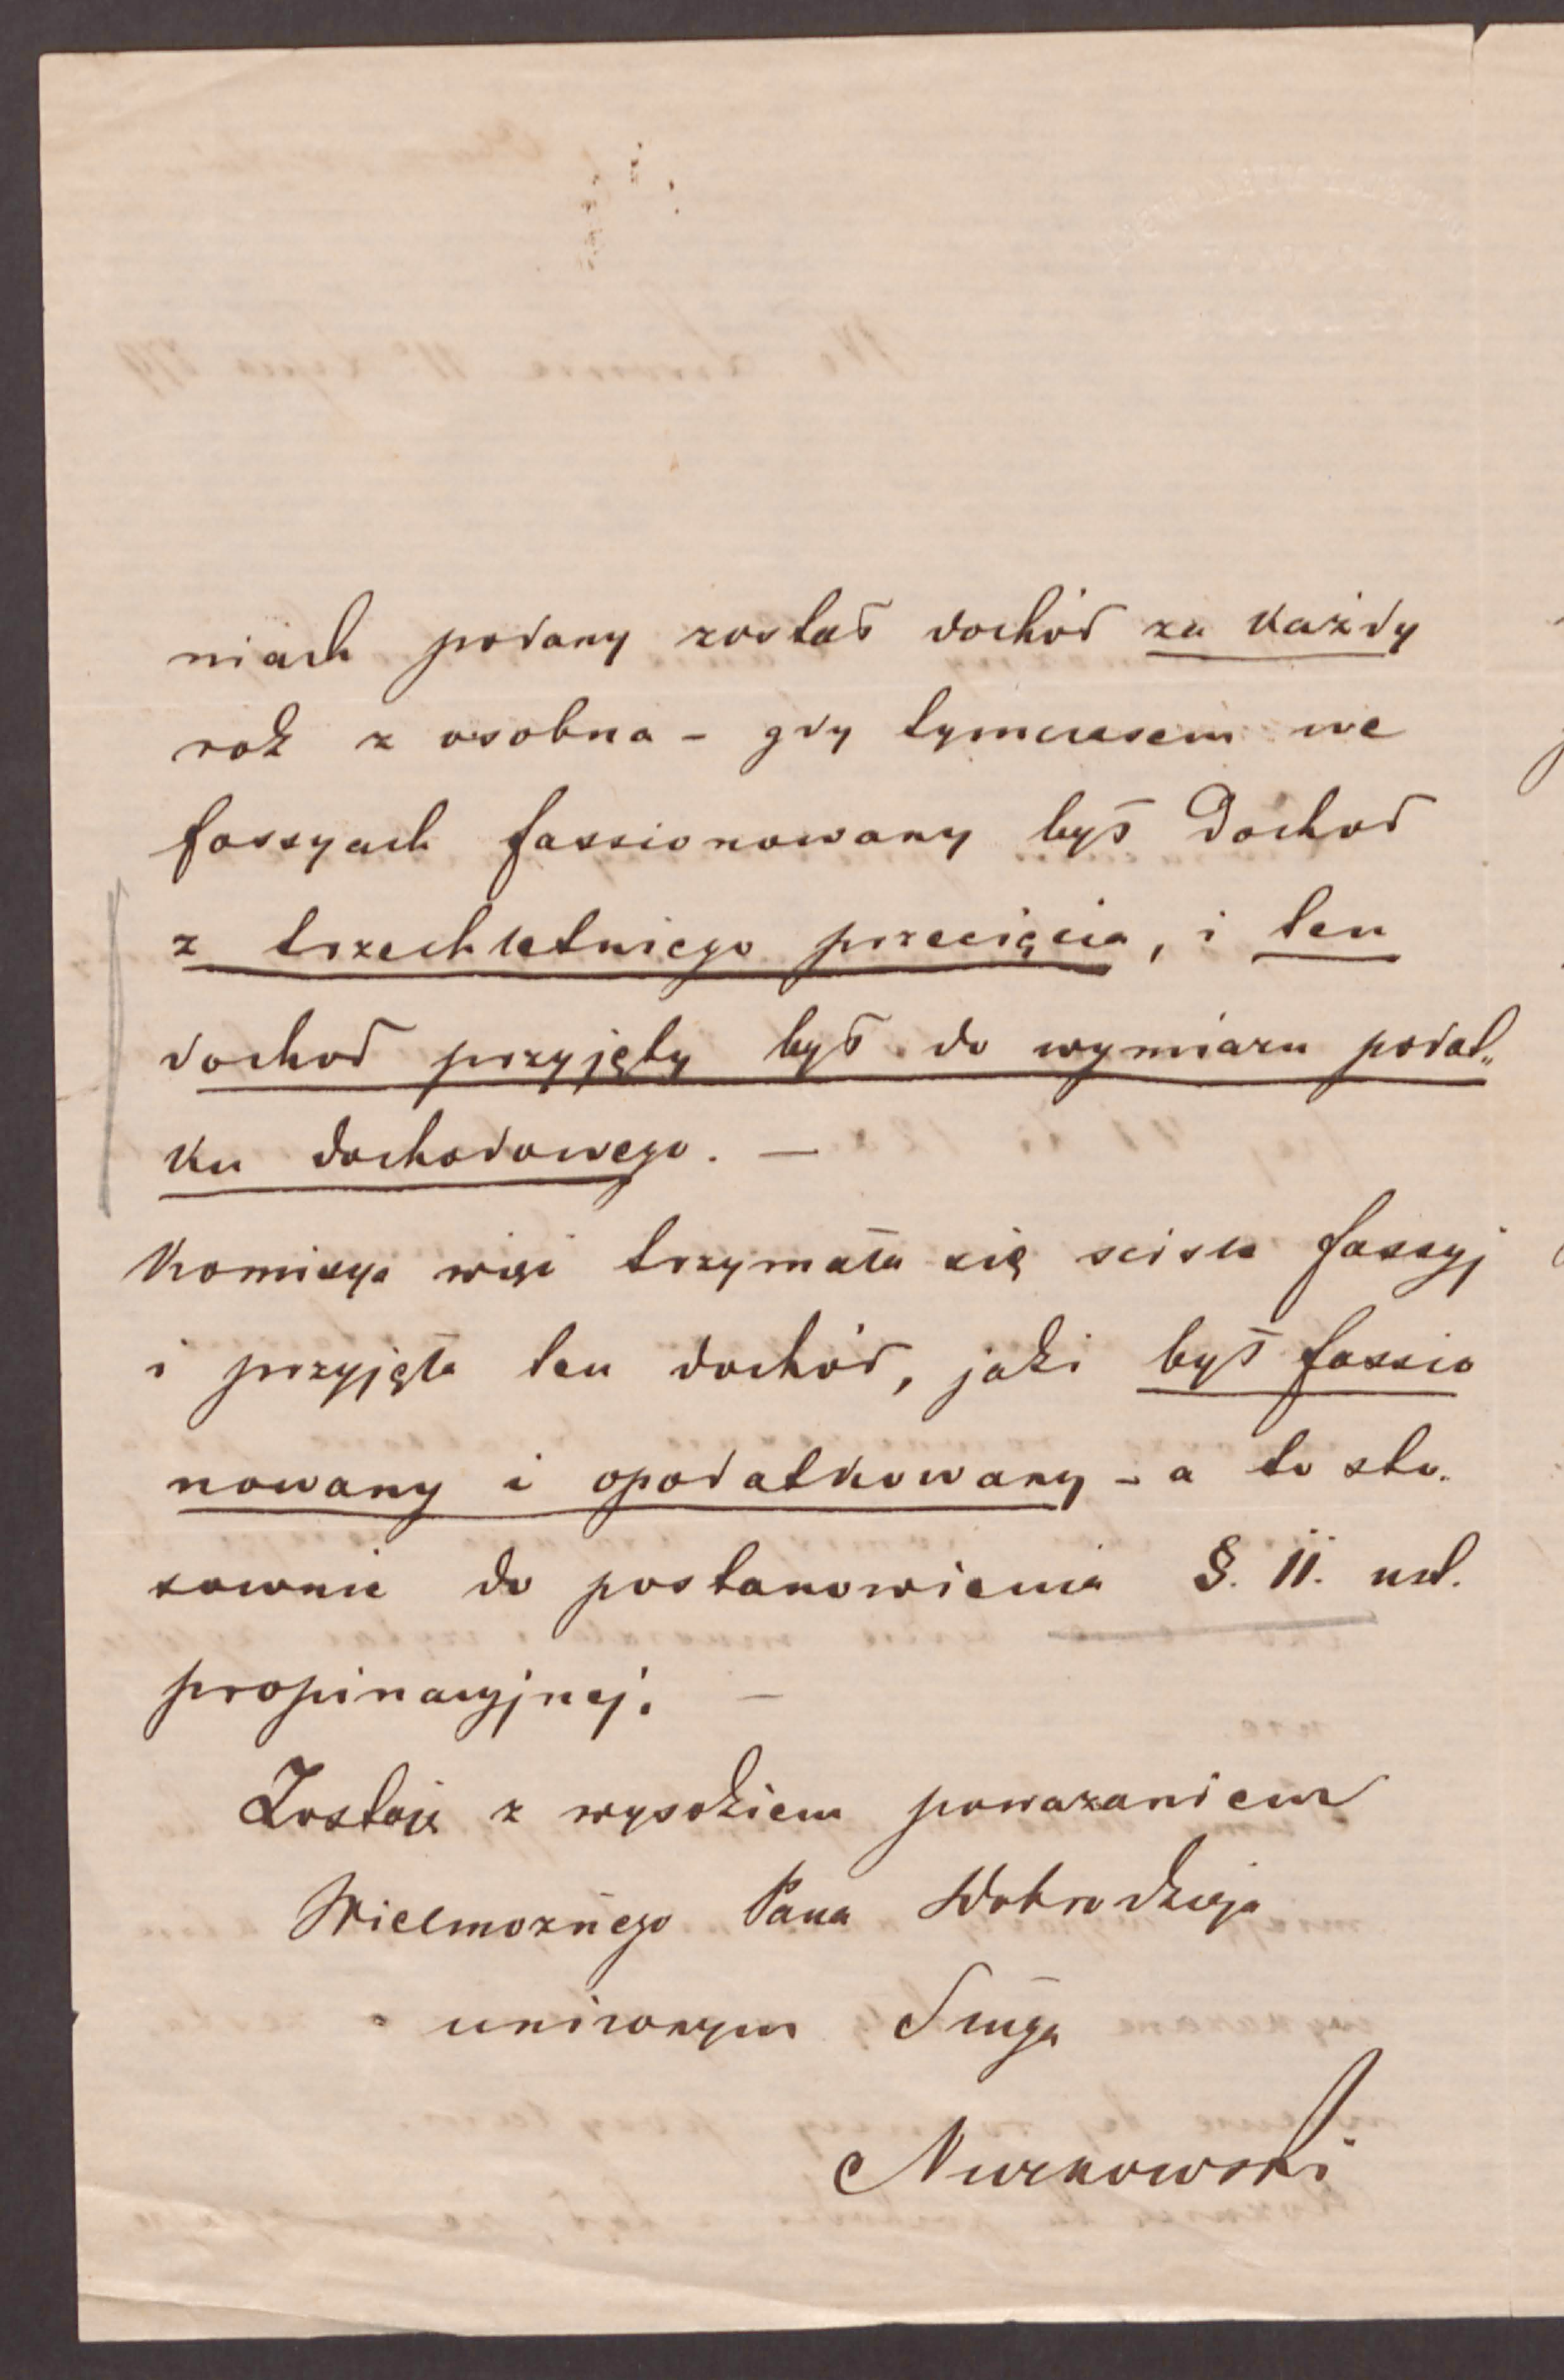 niach podany został dochód za każdy
rok z osobna - gdy tymczasem we
fassyach fassionowany był Dochod
z trzechletniego przecięcia, i ten
dochod przyjęty był do wymiaru podat„
ku dochodowego. —
Komisya więc trzymała się scisle fassyj
i przyjęła ten dochód, jaki był fassio
nowany i opodatkowany - a to sto„
sownie do postanowienia §. 11. ust.
propinacyjnej. —
Zostaję z wysokiem poważaniem
Wielmożnego Pana Dobrodzieja
uniżonym Sługą